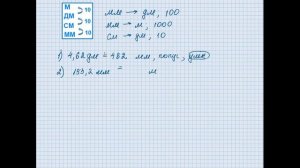 М
ДМ
СМ
ММ
10
10
10
мм → дм, 100
мм → м, 1000
см → дм, 10
1) 4,82 дм = 482 мм,
2) 193,2 мм = м